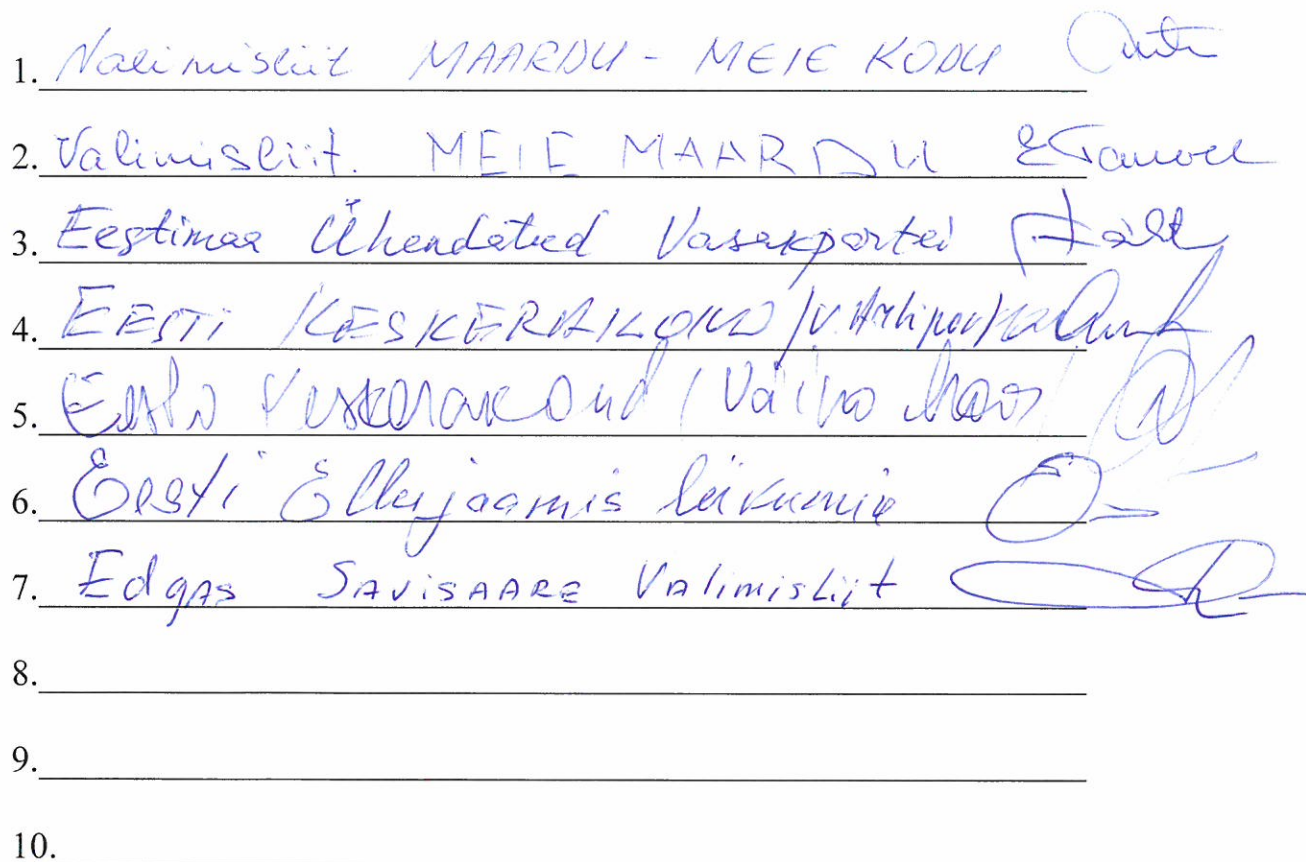 1. Valimisliit MAARDU - MEIE KODU
2. Valimisliit. MEIE MAARDU
3. Eestimaa Ühendatud Vasakpartei
4. EESTI KESKERAKOND
5. Eesti Keskerakond
6. Eesti liikumine
7. Edgas SAVISAARE VALIMISLIIT
8.
9.
10.